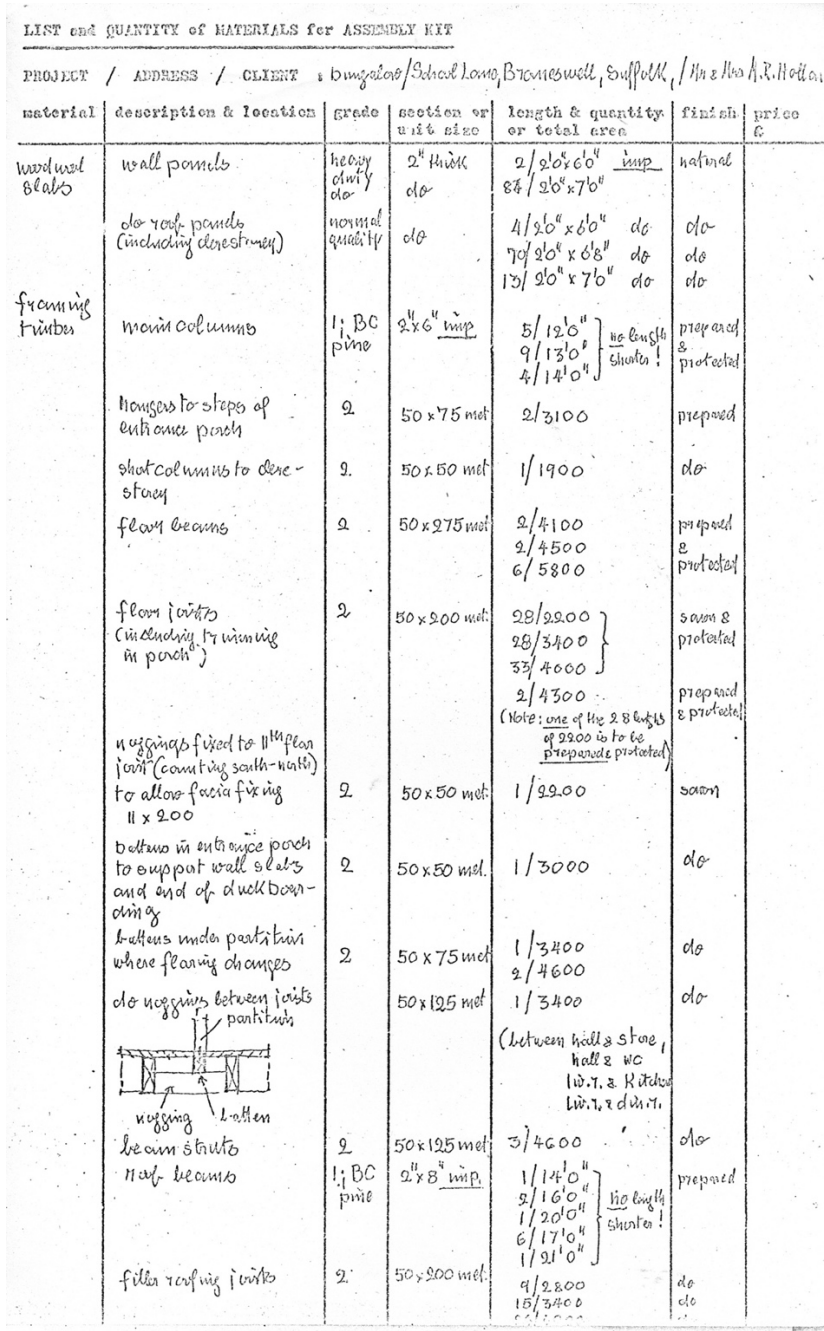 LIST and QUANTITY of MATERIALS for ASSEMBLY KIT
PROJECT / ADDRESS / CLIENT : bungalow/School Lane, Brameswell, Suffolk, / Mr & Mrs A.R.
material description & location grade section or unit size length & quantity or total area finish price £
woodwool slabs wall panels heavy duty 2" thick 2/2'0"x6'0" imp natural
do do 84/2'0"x7'0"
do roof panels (including clerestorey) normal quality do 4/2'0"x6'0" do do
70/2'0"x6'8" do do
13/2'0"x7'0" do do
framing timber main columns 1; BC pine 2"x6" imp 5/12'0" no length shorter! prepared & protected
9/13'0"
4/14'0"
hangers to steps of entrance porch 2 50x75 met 2/3100 prepared
short columns to clere-storey 2. 50x50 met 1/1900 do
floor beams 2 50x275 met 2/4100 prepared & protected
2/4500
6/5800
floor joists (including trimming in porch) 2 50x200 met. 28/2200 sawn & protected
28/3400
33/4000
2/4300 prepared & protected
(Note: one of the 28 lengths of 2200 is to be prepared & protected)
noggings fixed to 11th floor joist (counting south-north) to allow facia fixing 11 x 200 2 50x50 met. 1/2200 sawn
battens in entrance porch to support wall slabs and end of duckboar-ding 2 50x50 met. 1/3000 do
battens under partition where flooring changes 2 50x75 met 1/3400 do
2/4600
do noggings between joists 50x125 met 1/3400 do
partition
(between hall & store,
hall & WC
liv.r. & Kitchen
liv.r. & din.r.
nogging batten
beam struts 2 50x125 met 3/4600 do
roof beams 1; BC pine 2"x8" imp. 1/14'0" no length shorter! prepared
2/16'0"
1/20'0"
6/17'0"
1/21'0"
filler roofing joists 2. 50x200 met. 9/2800 do
15/3400 do